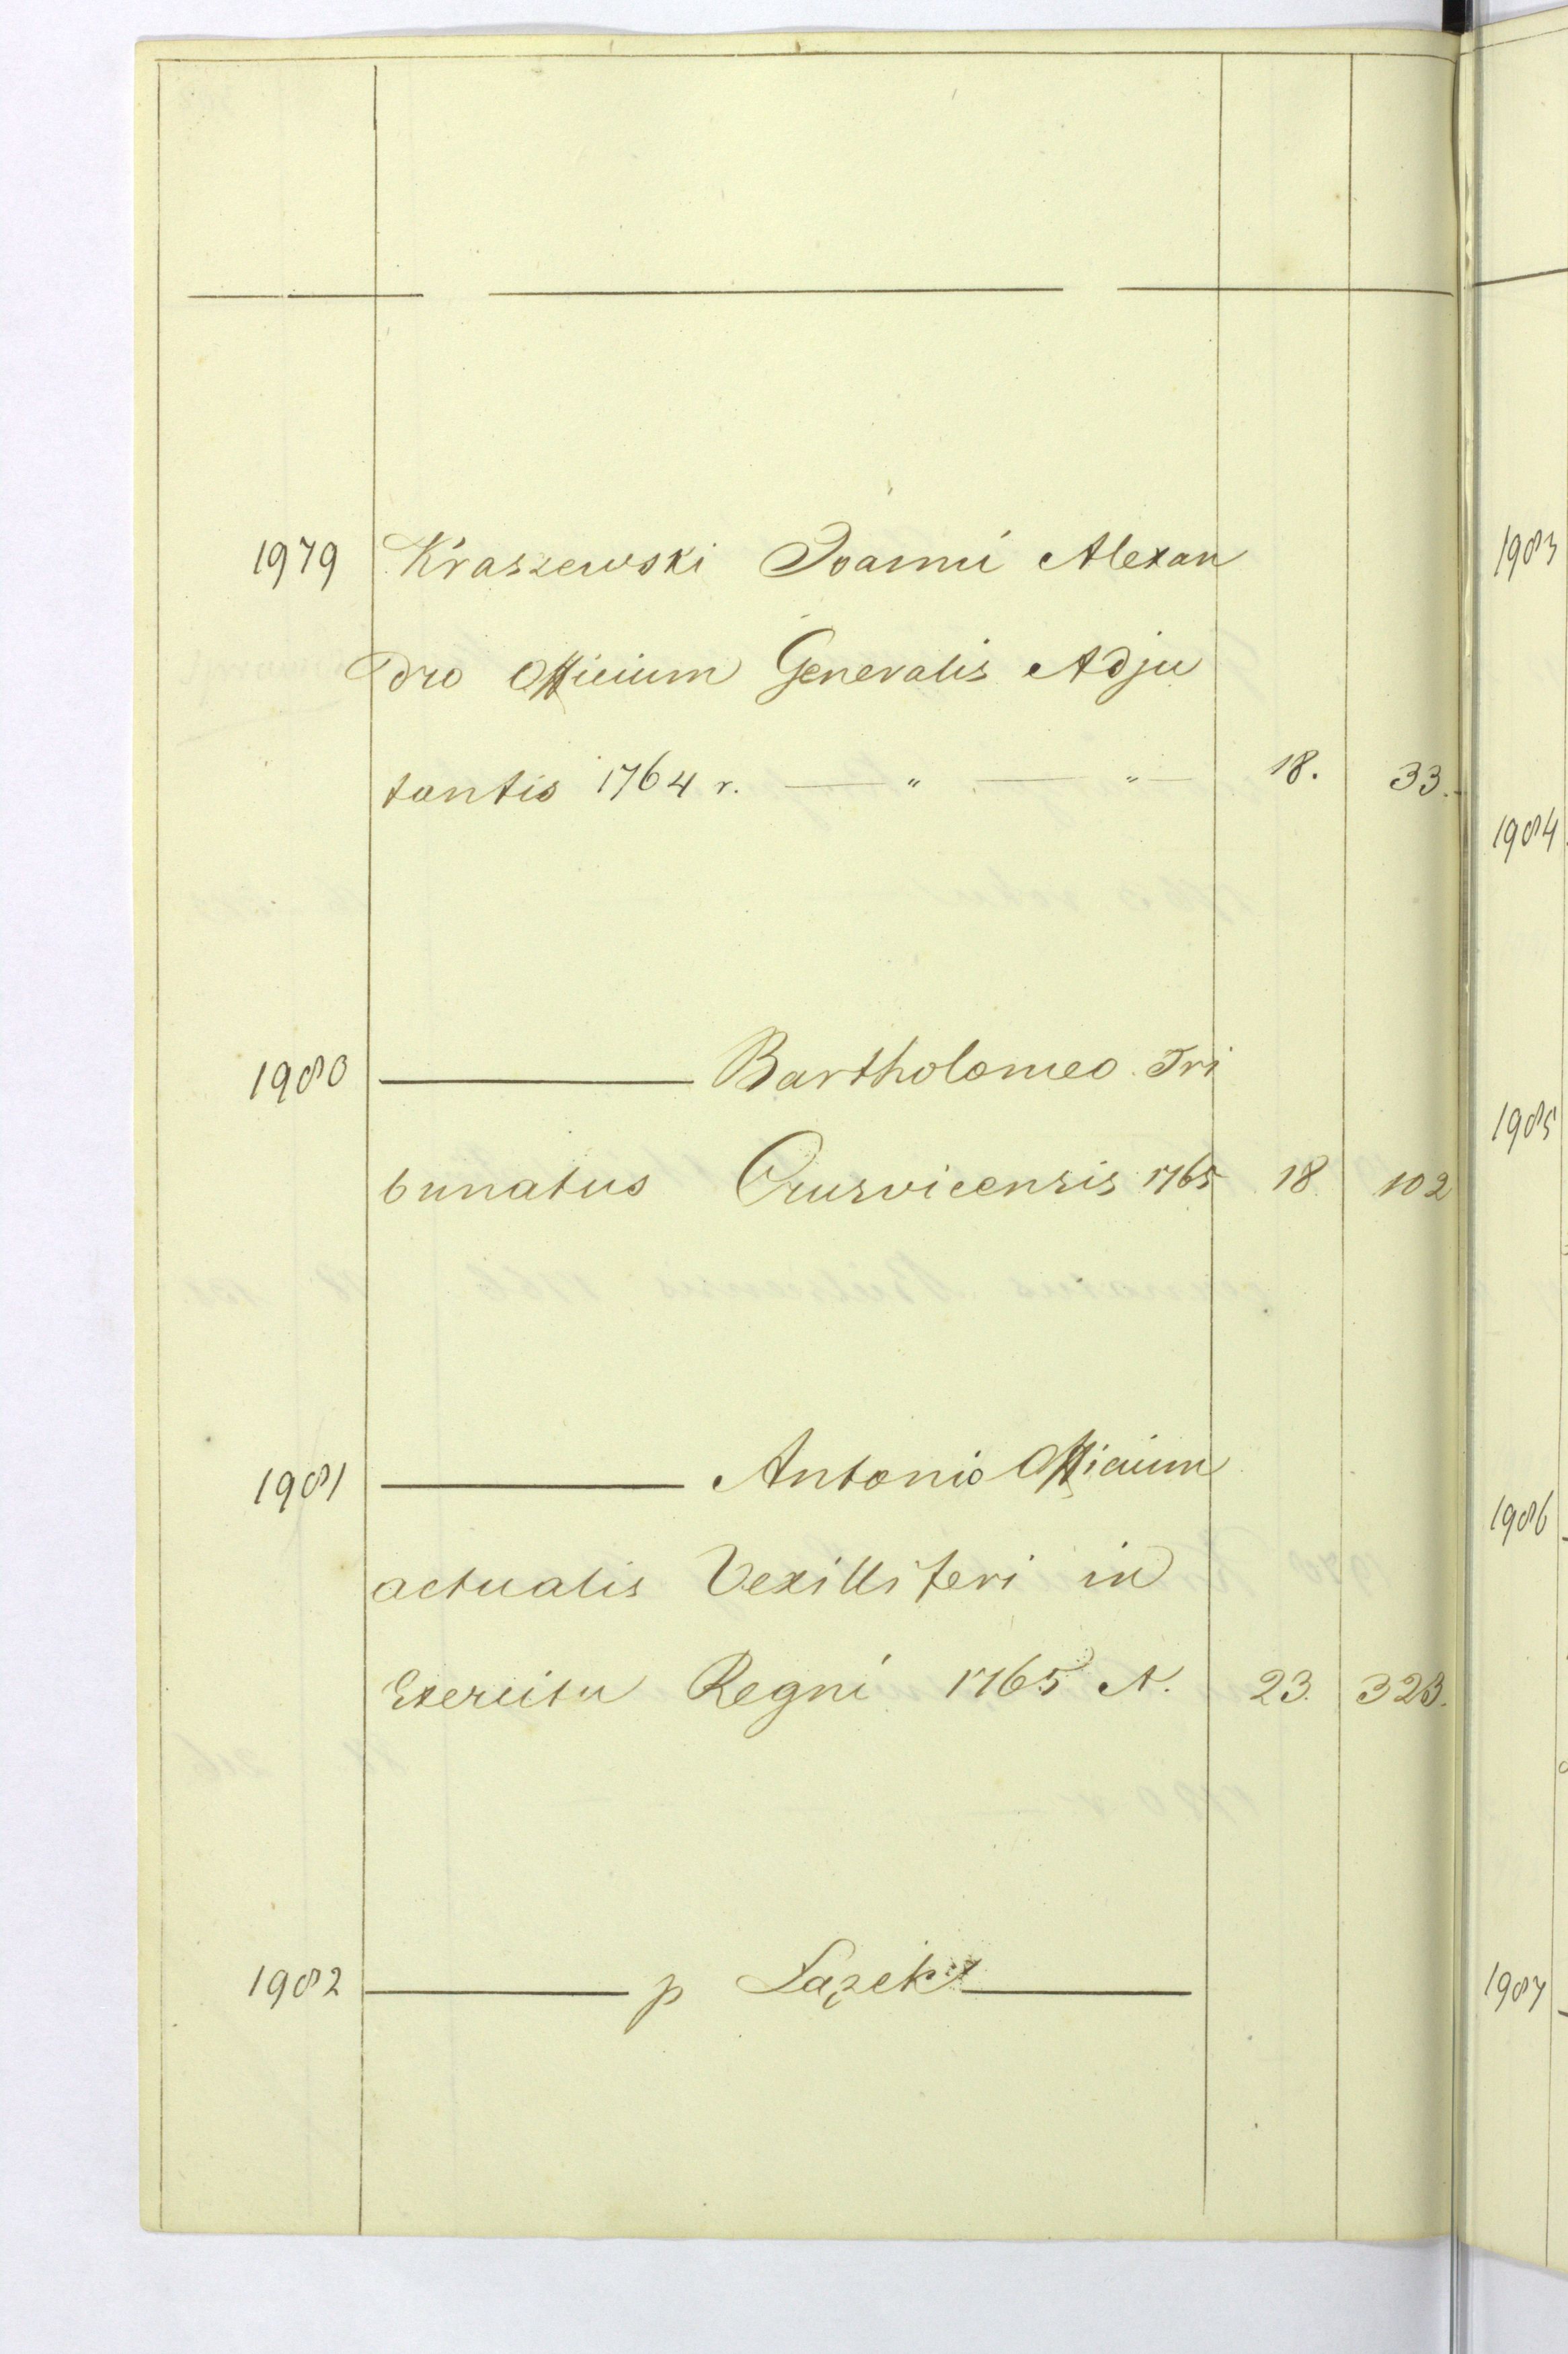 1979 Kraszewski Joanni Alexan
dro Officium Generalis Adju
tantis 1764 r. — " — " — 18. 33.
1980 ——— Bartholomeo Tri
bunatus Crusvicensis 1765 18 102
1981 ——— Antonio Officium
actualis Vexilliferi in
Exercitu Regni 1765 A. 23. 323.
1982 ——— p Łazęk ———
1983
1984
1985
1986
1987